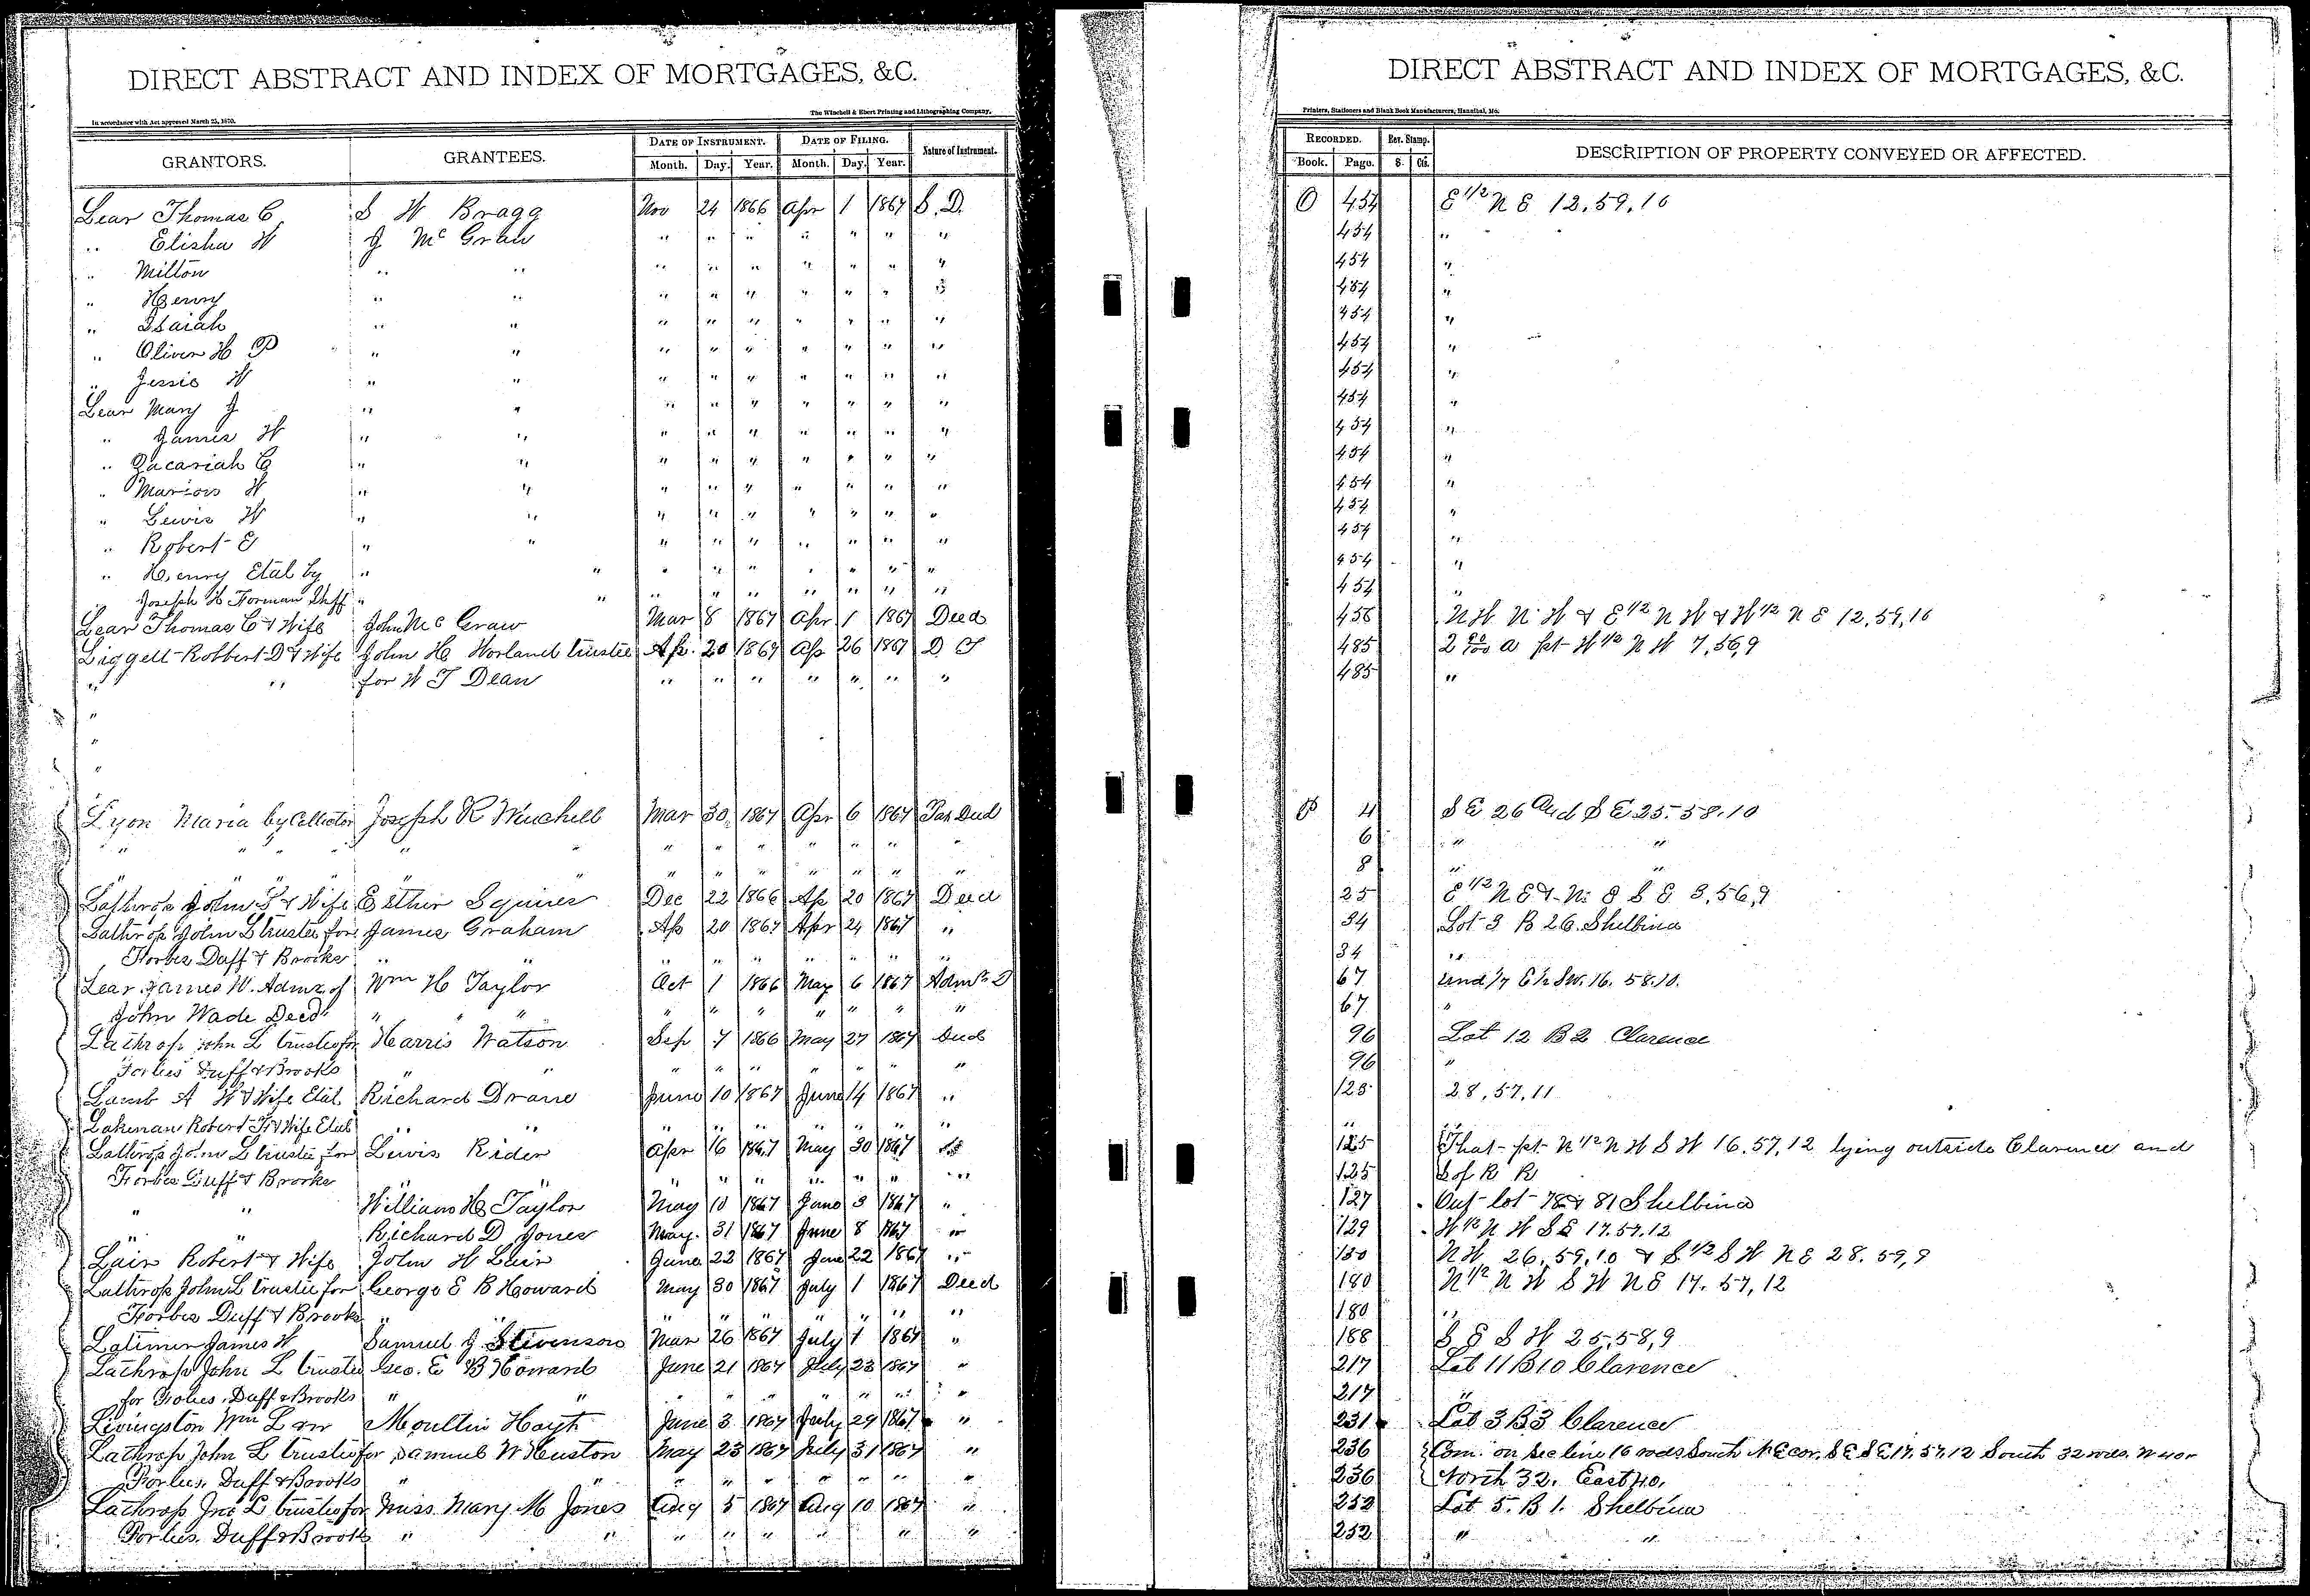 DIRECT ABSTRACT AND INDEX OF MORTGAGES, &C.
The Winchell & Ebert Printing and Lithographing Company,
In accordance with Act approved March 25, 1870.
GRANTORS. GRANTEES. DATE OF INSTRUMENT. DATE OF FILING. Nature of Instrument.
Month. Day. Year. Month. Day. Year.
Lear Thomas C S W Bragg Nov 24 1866 Apr 1 1867 S. D.
" Elisha W J McGraw " " " " " " "
" Milton " " " " " " " " "
" Henry " " " " " " " " "
" Isaiah " " " " " " " " "
" Oliver H P " " " " " " " " "
" Jessie W " " " " " " " " "
Lear Mary J " " " " " " " " "
" James W " " " " " " " " "
" Zacariah C " " " " " " " " "
" Marion W " " " " " " " " "
" Lewis W " " " " " " " " "
" Robert E " " " " " " " " "
" Henry Etal by " " " " " " " " "
" Joseph H Forman Shff " " " " " " " " "
Lear Thomas C & Wife John McGraw Mar 8 1867 Apr 1 1867 Deed
Liggett Robbert D & Wife John H Worland trustee Ap. 20 1867 Ap 26 1867 D T
" " for W T Dean " " " " " " "
"
"
"
Lyon Maria by Collector Joseph R Winchell Mar 30 1867 Apr 6 1867 Tax Deed
" " " " " " " " " " " " "
" " " " " " " " " " "
Lathrop John L & Wife Esther Squires Dec 22 1866 Ap 20 1867 Deed
Lathrop John L trustee for James Graham Ap 20 1867 Apr 24 1867 "
Forbes Duff & Brooks " " " " " " " " "
Lear James W. Admr of Wm H Taylor Oct 1 1866 May 6 1867 Admr D
John Wade Decd " " " " " " " " "
Lathrop John L trustee for Harris Watson Sep 7 1866 May 27 1867 Deed
Forbes Duff & Brooks " " " " " " " " "
Lamb A W & Wife Etal Richard Drane June 10 1867 June 14 1867 "
Lakenan Robert F & Wife Etal " " " " " " " " "
Lathrop John L trustee for Lewis Rider Apr 16 1867 May 30 1867 "
Forbes Duff & Brooks " " " " " " " " "
" " William H Taylor May 10 1867 June 3 1867 "
" " Richard D Jones May. 31 1867 June 8 1867 "
Lair Robert & Wife John W Lair June 22 1867 June 22 1867 "
Lathrop John L trustee for George E B Howard May 30 1867 July 1 1867 Deed
Forbes Duff & Brooks " " " " " " " " "
Latimer James W Samuel J Stevenson Mar 26 1867 July 1 1867 "
Lathrop John L trustee Geo. E B Howard June 21 1867 July 23 1867 "
for Forbes, Duff & Brooks " " " " " " " " "
Livingston Wm L Moultin Hoyt June 3 1867 July 29 1867 "
Lathrop John L trustee for Samuel W Huston May 23 1867 July 31 1867 "
Forbes, Duff & Brooks " " " " " " " " "
Lathrop Jno L trustee for Miss. Mary M Jones Aug 5 1867 Aug 10 1867 "
Forbes. Duff & Brooks " " " " " " " " "
DIRECT ABSTRACT AND INDEX OF MORTGAGES, &C.
Printers, Stationers and Blank Book Manufacturers, Hannibal, Mo.
RECORDED. Rev. Stamp. DESCRIPTION OF PROPERTY CONVEYED OR AFFECTED.
Book. Page. $. Cts.
O 454 E 1/2 N E 12.59.10
454 "
454 "
454 "
454 "
454 "
454 "
454 "
454 "
454 "
454 "
454 "
454 "
454 "
454 "
456 N W N W & E 1/2 N W & W 1/2 N E 12,59,10
485 2 90/100 a pt W 1/2 N W 7,56,9
485 "
P 4 S E 26 And S E 25.58.10
6 " "
8 " "
25 E 1/2 N E & N E S E 3,56,9
34 Lot 3 B 26. Shelbina
34 "
67 Und 1/7 E 1/2 SW. 16. 58.10.
67 "
96 Lot 12 B 2 Clarence
96 "
123 28,57,11
" "
125 That pt N 1/2 N W S W 16.57,12 lying outside Clarence and
125 S of R R
127 Out lot 78 & 81 Shelbina
129 W 1/2 N W S E 17.57.12
130 N W. 26.59.10 & S 1/2 S W N E 28.59,9
180 N 1/2 N W S W N E 17.57,12
180 "
188 S E S W 25,58,9
217 Lot 11 B 10 Clarence
217 "
231 Lot 3 B 3 Clarence
236 Com. on Sec line 16 rods South N E cor. S E S E 17.57.12 South 32 rods. W 40 r
236 North 32. East 40.
252 Lot 5. B 1. Shelbina
252 " "